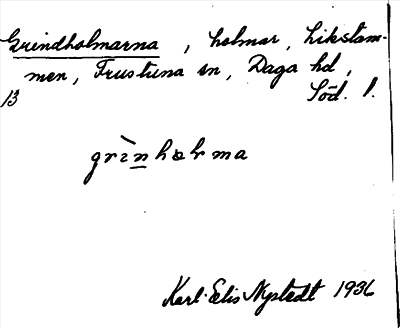 Grindholmarna , holmar, Likstam-
men, Frustuna sn, Daga hd,
13 Söd. l.
grìnholma
Karl-Elis Nystedt 1936